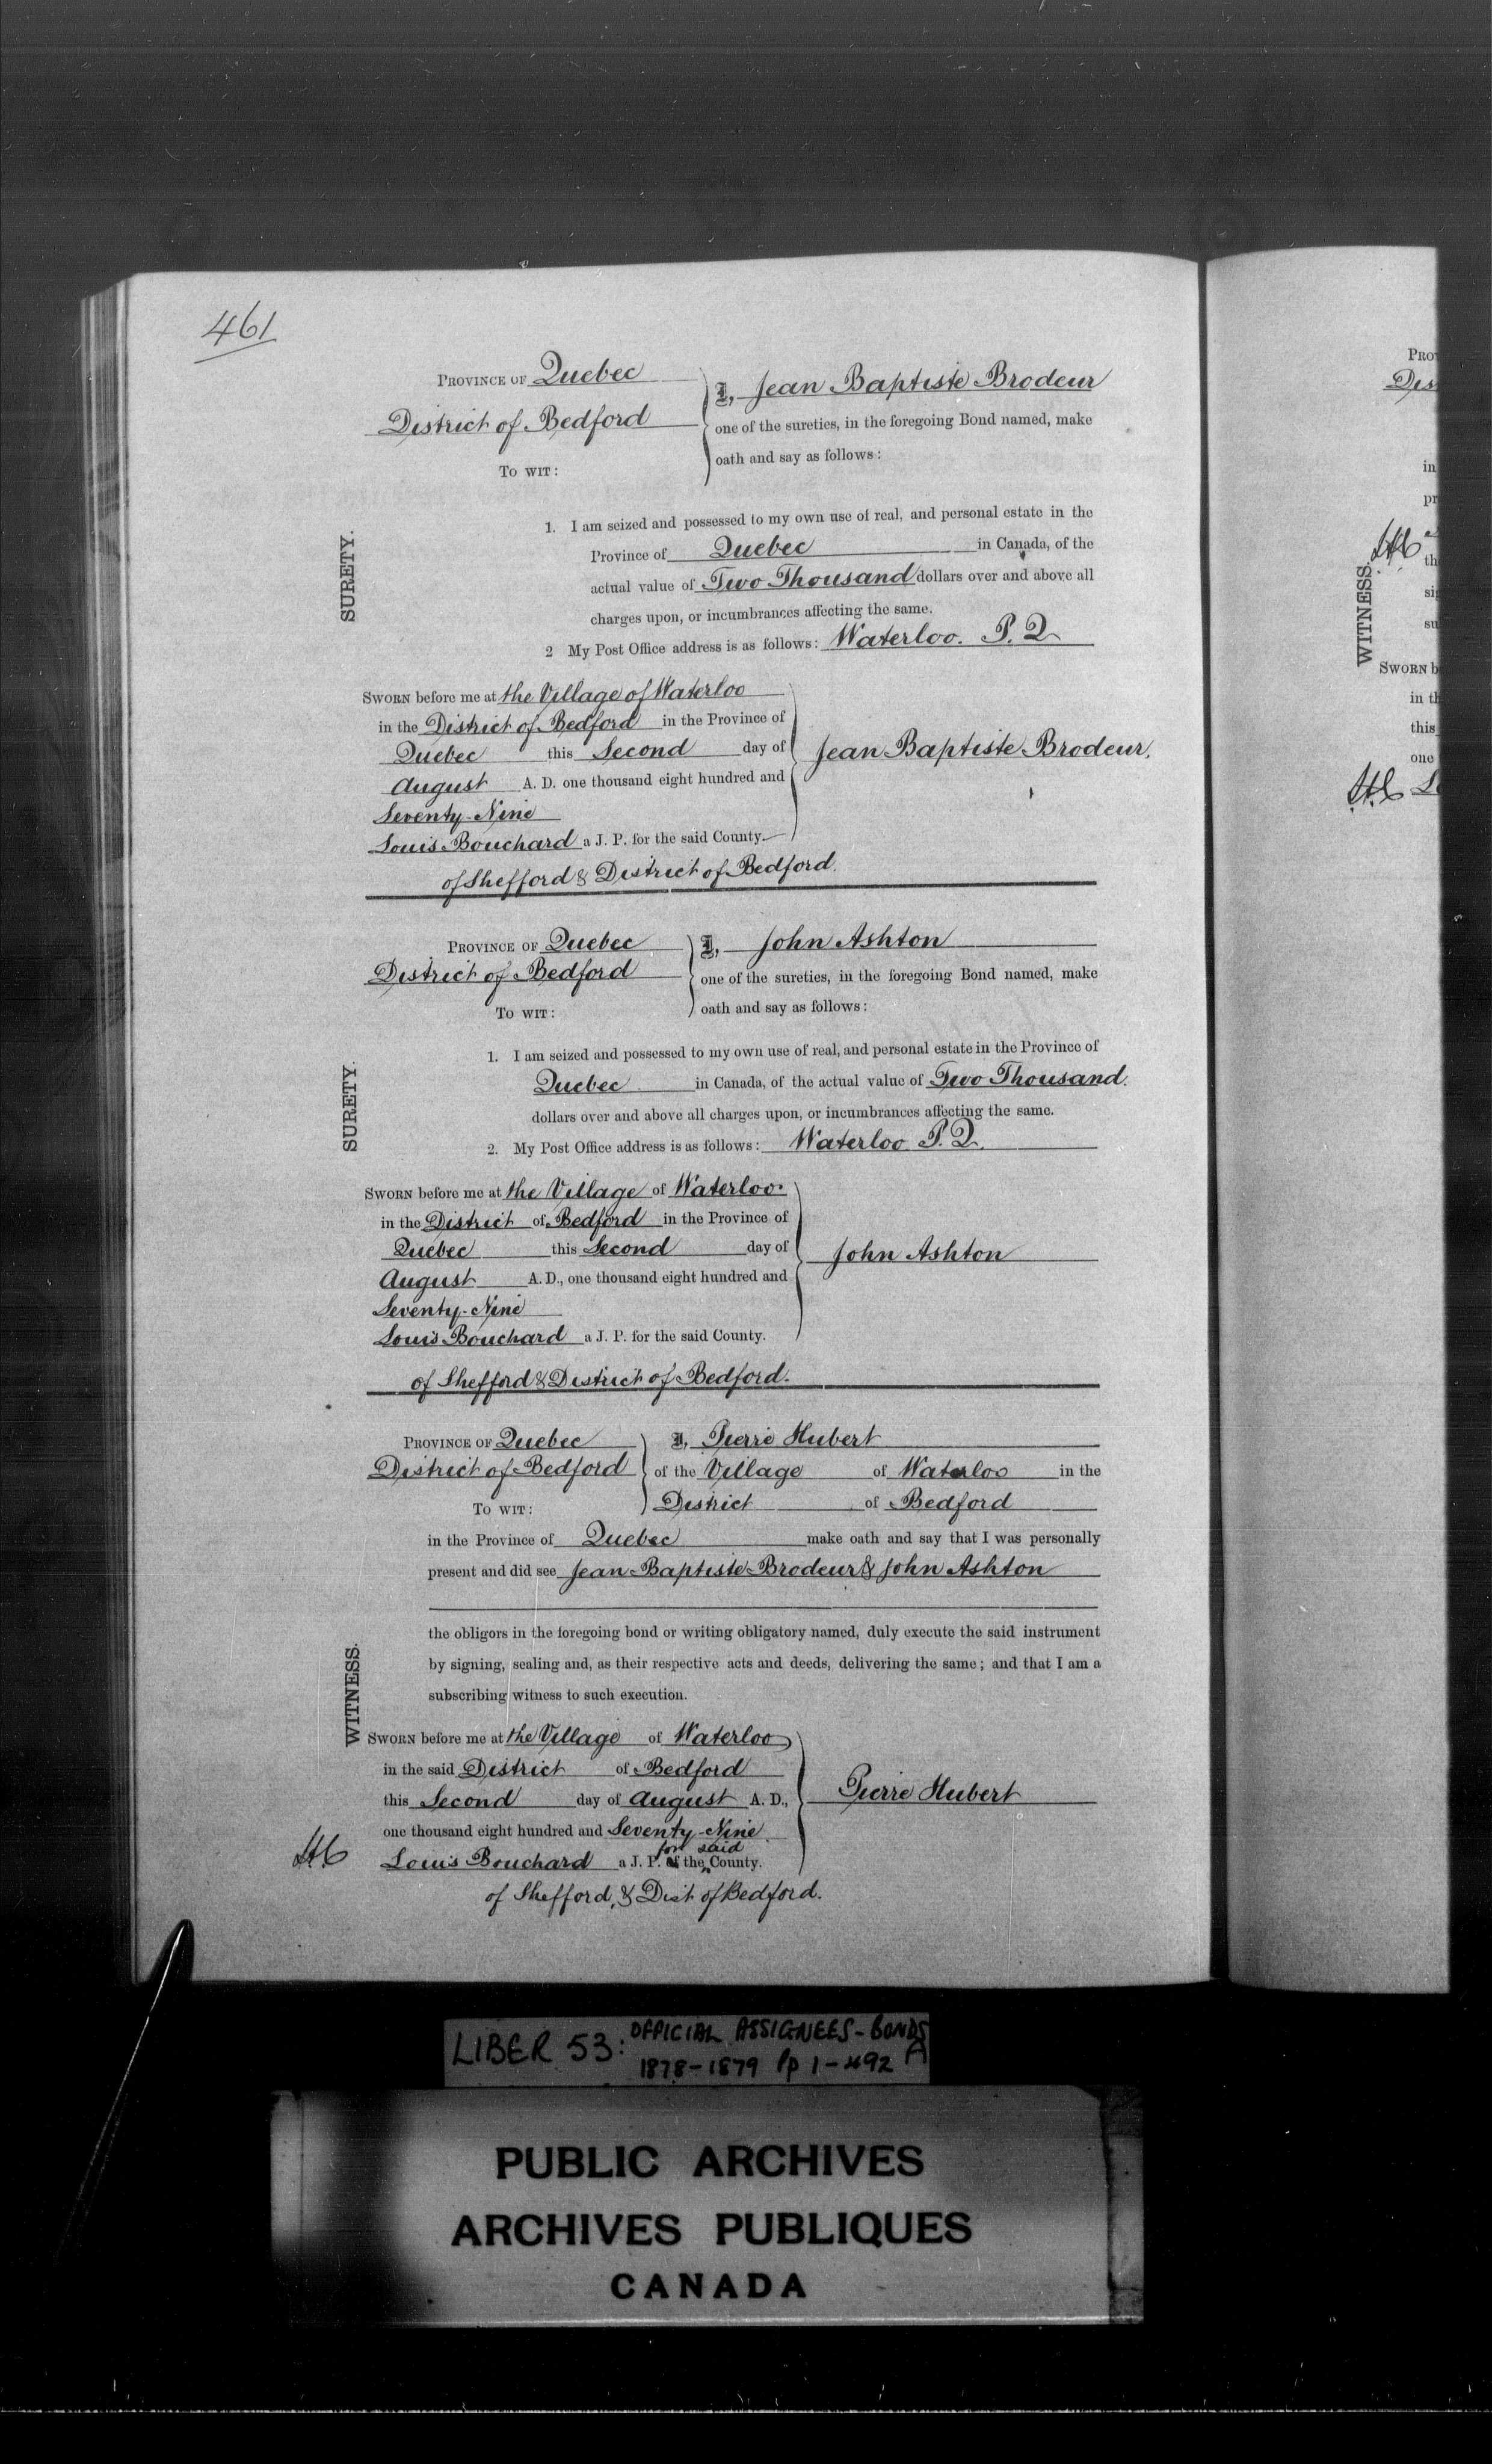 461
PROVINCE OF Quebec
District of Bedford
TO WIT:
I, Jean Baptiste Brodeur
one of the sureties, in the foregoing Bond named, make
oath and say as follows:
SURETY.
1. I am seized and possessed to my own use of real, and personal estate in the
Province of Quebec in Canada, of the
actual value of Two Thousand dollars over and above all
charges upon, or incumbrances affecting the same.
2 My Post Office address is as follows: Waterloo. P.Q
SWORN before me at the Village of Waterloo
in the District of Bedford in the Province of
Quebec this Second day of
August A. D. one thousand eight hundred and
Seventy-Nine
Louis Bouchard a J. P. for the said County.
of Shefford & District of Bedford.
Jean Baptiste Brodeur.
PROVINCE OF Quebec
District of Bedford
TO WIT:
I, John Ashton
one of the sureties, in the foregoing Bond named, make
oath and say as follows:
SURETY.
1. I am seized and possessed to my own use of real, and personal estate in the Province of
Quebec in Canada, of the actual value of Two Thousand.
dollars over and above all charges upon, or incumbrances affecting the same.
2. My Post Office address is as follows: Waterloo P.Q.
SWORN before me at the Village of Waterloo.
in the District of Bedford in the Province of
Quebec this Second day of
August A. D., one thousand eight hundred and
Seventy-Nine
Louis Bouchard a J. P. for the said County.
of Shefford & District of Bedford.
John Ashton
PROVINCE OF Quebec
District of Bedford
TO WIT:
I, Pierre Hubert
of the Village of Waterloo in the
District of Bedford
in the Province of Quebec make oath and say that I was personally
present and did see Jean Baptiste Brodeur & John Ashton
the obligors in the foregoing bond or writing obligatory named, duly execute the said instrument
by signing, sealing and, as their respective acts and deeds, delivering the same; and that I am a
subscribing witness to such execution.
WITNESS.
SWORN before me at the Village of Waterloo
in the said District of Bedford
this Second day of August A. D.,
one thousand eight hundred and Seventy-Nine
for said
Louis Bouchard a J. P. of the County.
of Shefford, & Dist of Bedford.
Pierre Hubert
PRO
Dis
in
pr
th
si
su
WITNESS.
SWORN b
in th
this
one
LIBER 53: OFFICIAL ASSIGNEES - BONDS
1878-1879 Pp 1-492 A
PUBLIC ARCHIVES
ARCHIVES PUBLIQUES
CANADA